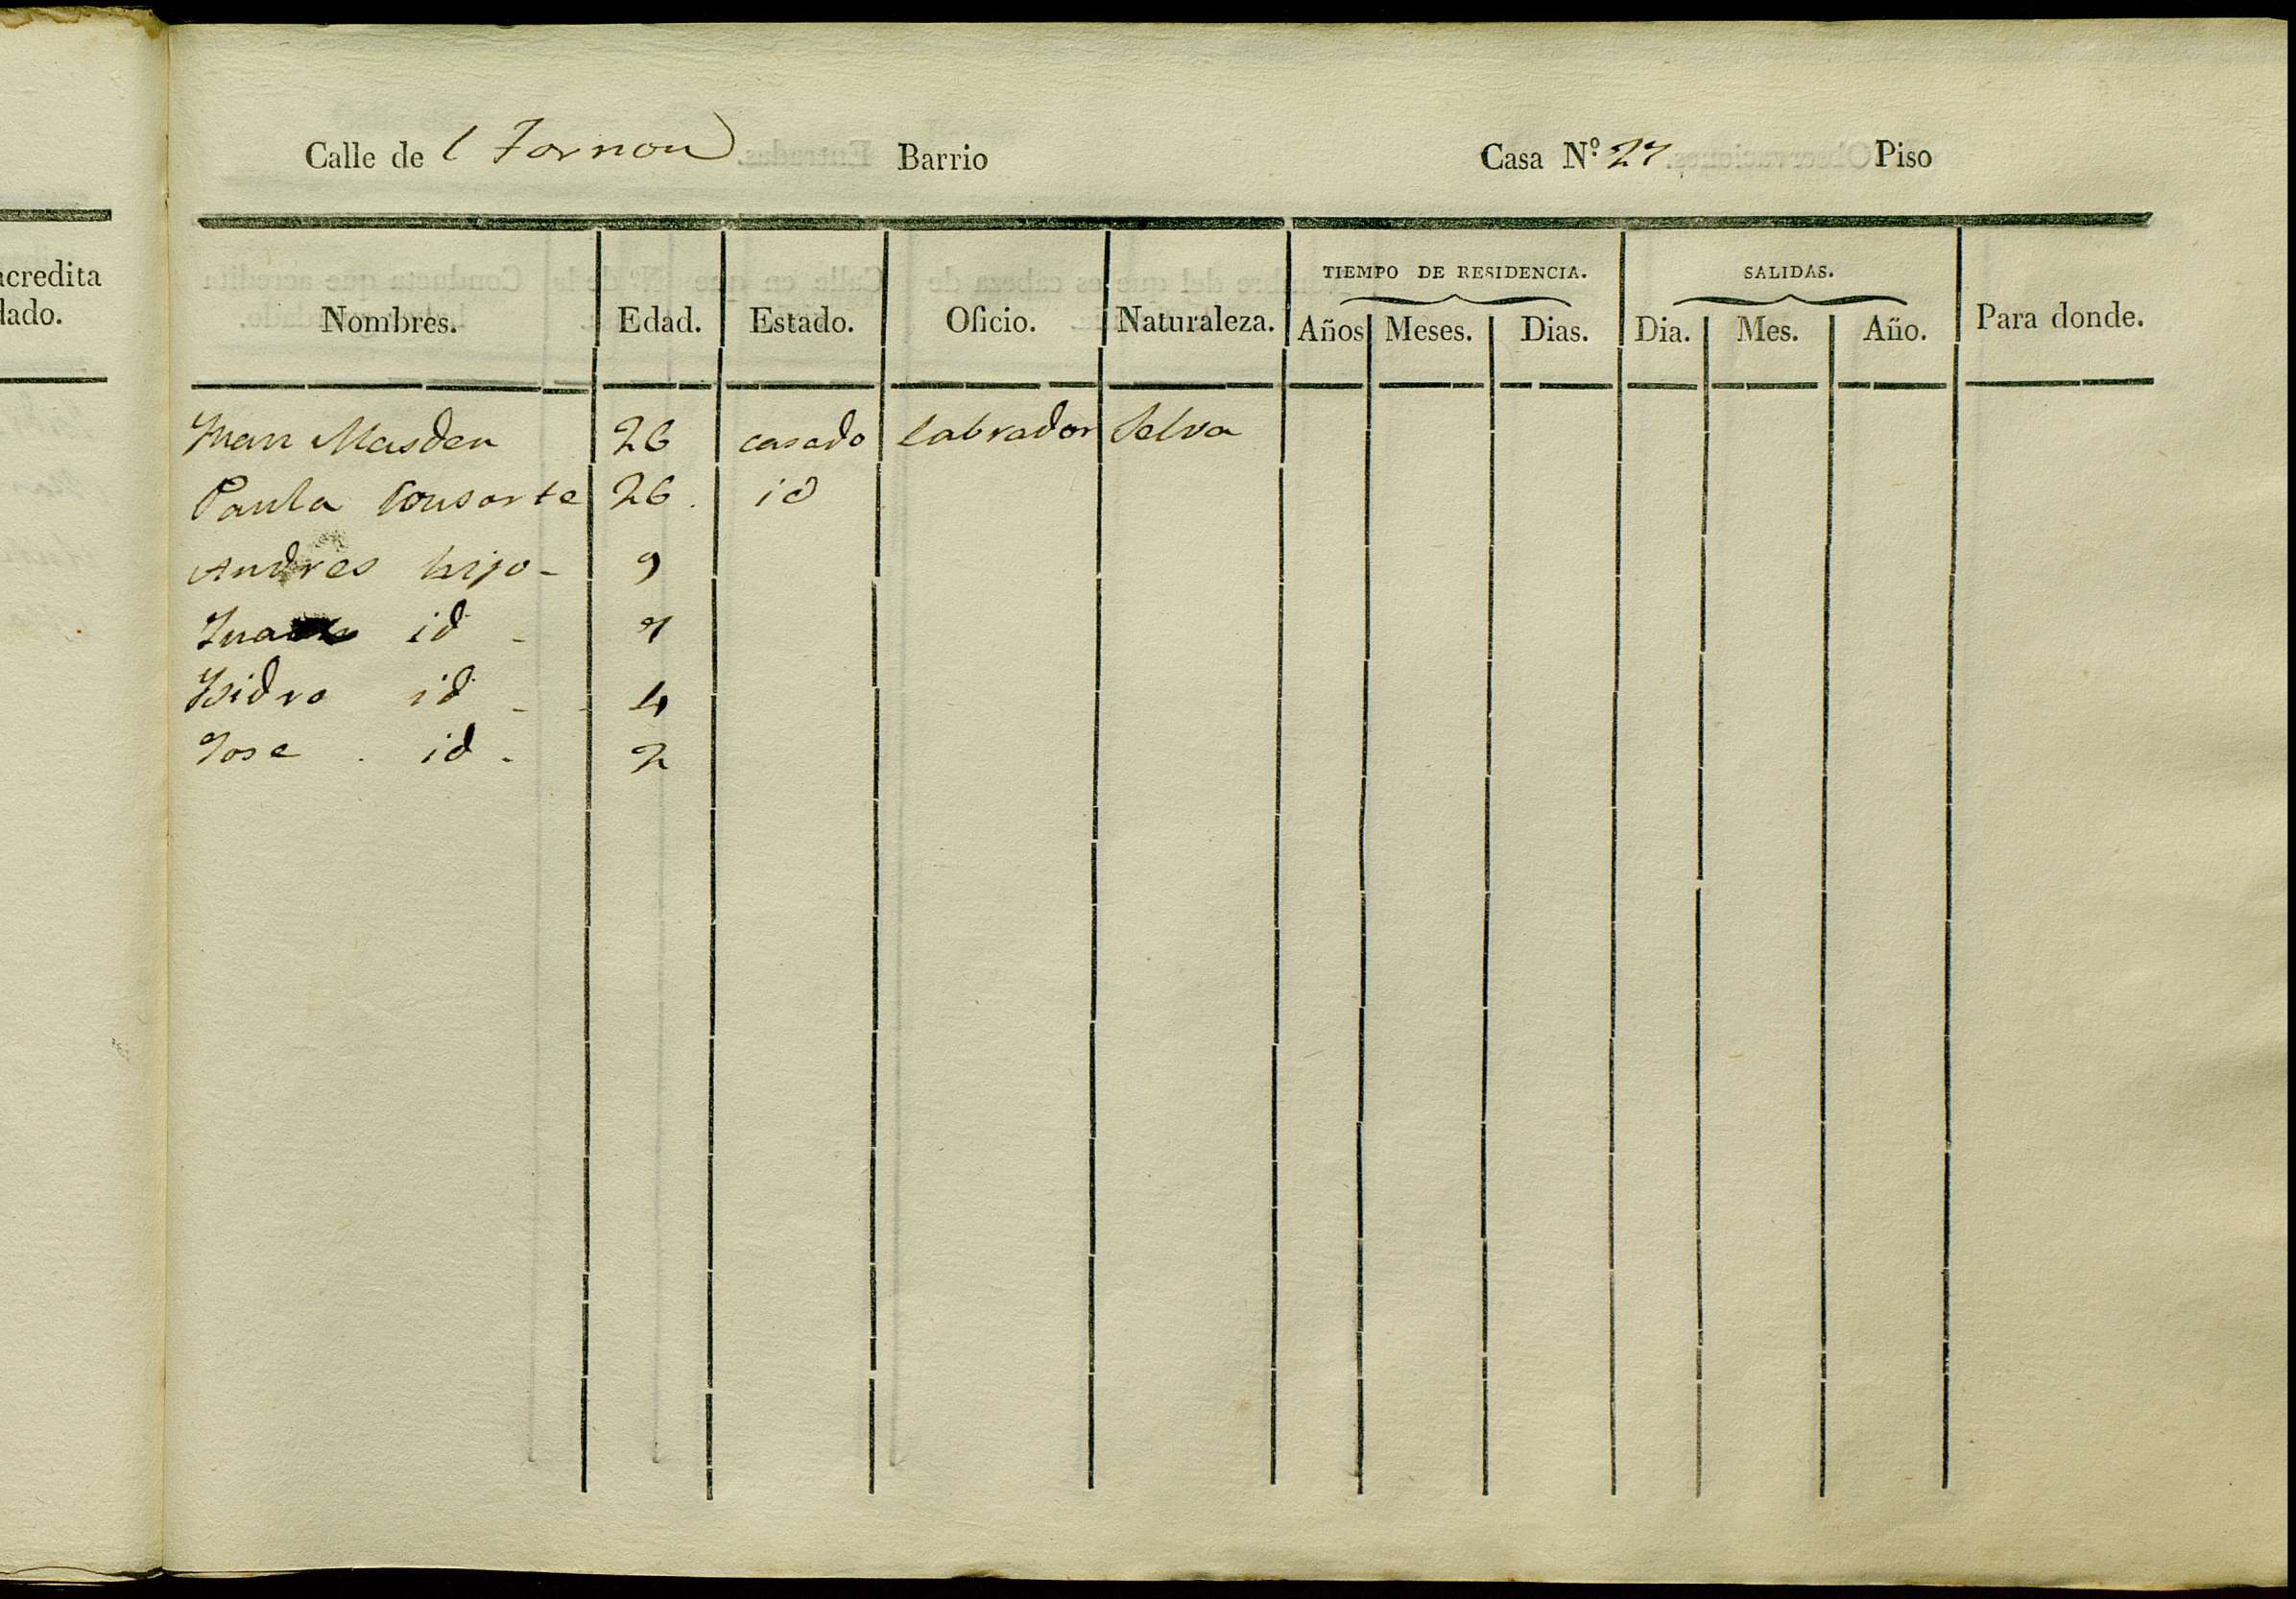 acredita
lado.
Calle de l Fornou Barrio Casa Nº 27 Piso
Nombres. Edad. Estado. Oficio. Naturaleza. TIEMPO DE RESIDENCIA. Años Meses. Dias. SALIDAS. Dia. Mes. Año. Para donde.
Juan Masdeu 26 casado labrador Selva
Paula Consorte 26. id
Andres hijo - 9
Juan id - 7
Isidro id - - 4
Jose . id - 2